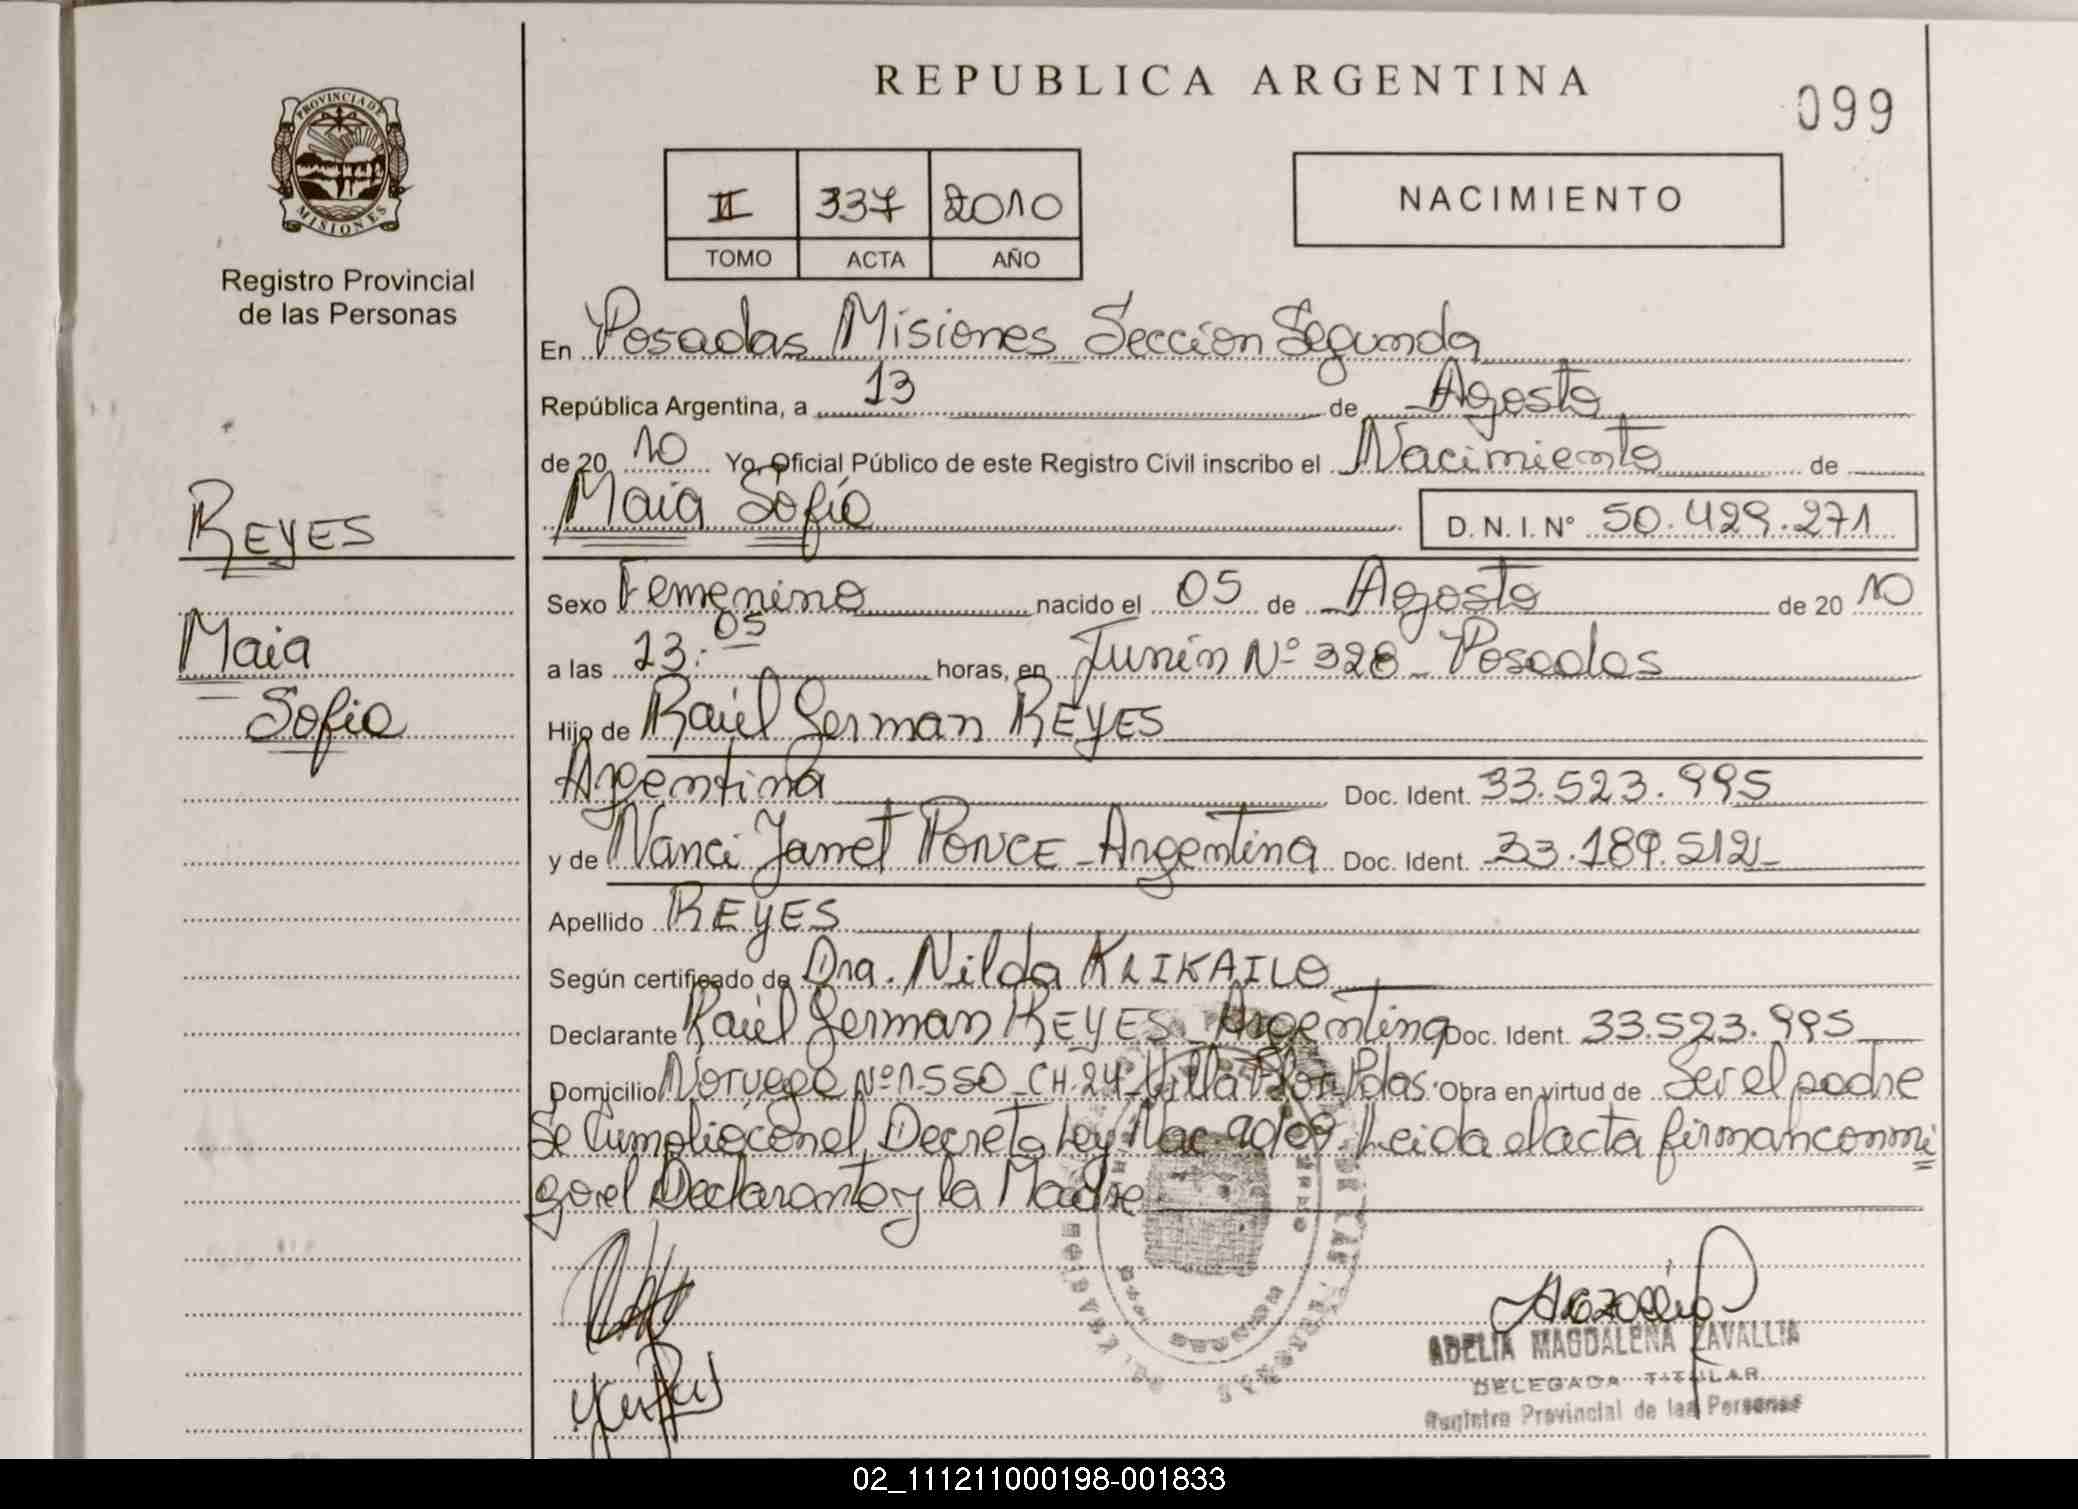 REPUBLICA ARGENTINA
099
PROVINCIA DE
MISIONES
Registro Provincial
de las Personas
II 337 2010
TOMO ACTA AÑO
NACIMIENTO
En Posadas Misiones Seccion Segunda
República Argentina, a 13 de Agosto
de 20 10 Yo, Oficial Público de este Registro Civil inscribo el Nacimiento de
Maia Sofia
D. N. I. N° 50.429.271
REYES
Maia
Sofia
Sexo Femenino nacido el 05 de Agosto de 20 10
a las 23:05 horas, en Junin Nº 328 - Posadas
Hijo de Raúl German REYES
Argentina Doc. Ident. 33.523.995
y de Nanci Janet PONCE - Argentina Doc. Ident. 33.189.512
Apellido REYES
Según certificado de Dra. Nilda KLIKAILO
Declarante Raúl German REYES - Argentina Doc. Ident. 33.523.995
Domicilio Noruega Nº 1.550 - CH.24 - Villa Flor - Pdas. Obra en virtud de Ser el padre
Se Cumplió con el Decreto Ley Nac 90/09. Leida el acta firman conmi
go el Declarante y la Madre
ADELIA MAGDALENA ZAVALLIA
DELEGADA TITULAR
Registro Provincial de las Personas
02_111211000198-001833